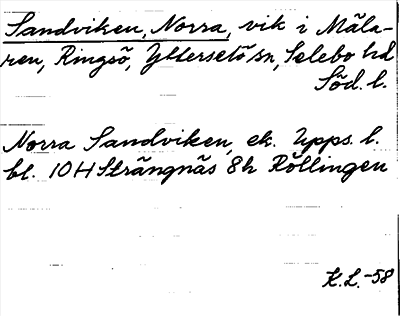 Sandviken, Norra, vik i Mäla-
ren, Ringsö, Ytterselö sn, Selebo hd
Söd. l.
Norra Sandviken, ek. Upps. l.
bl. 10H Strängnäs 8h Röllingen
K.L. -58